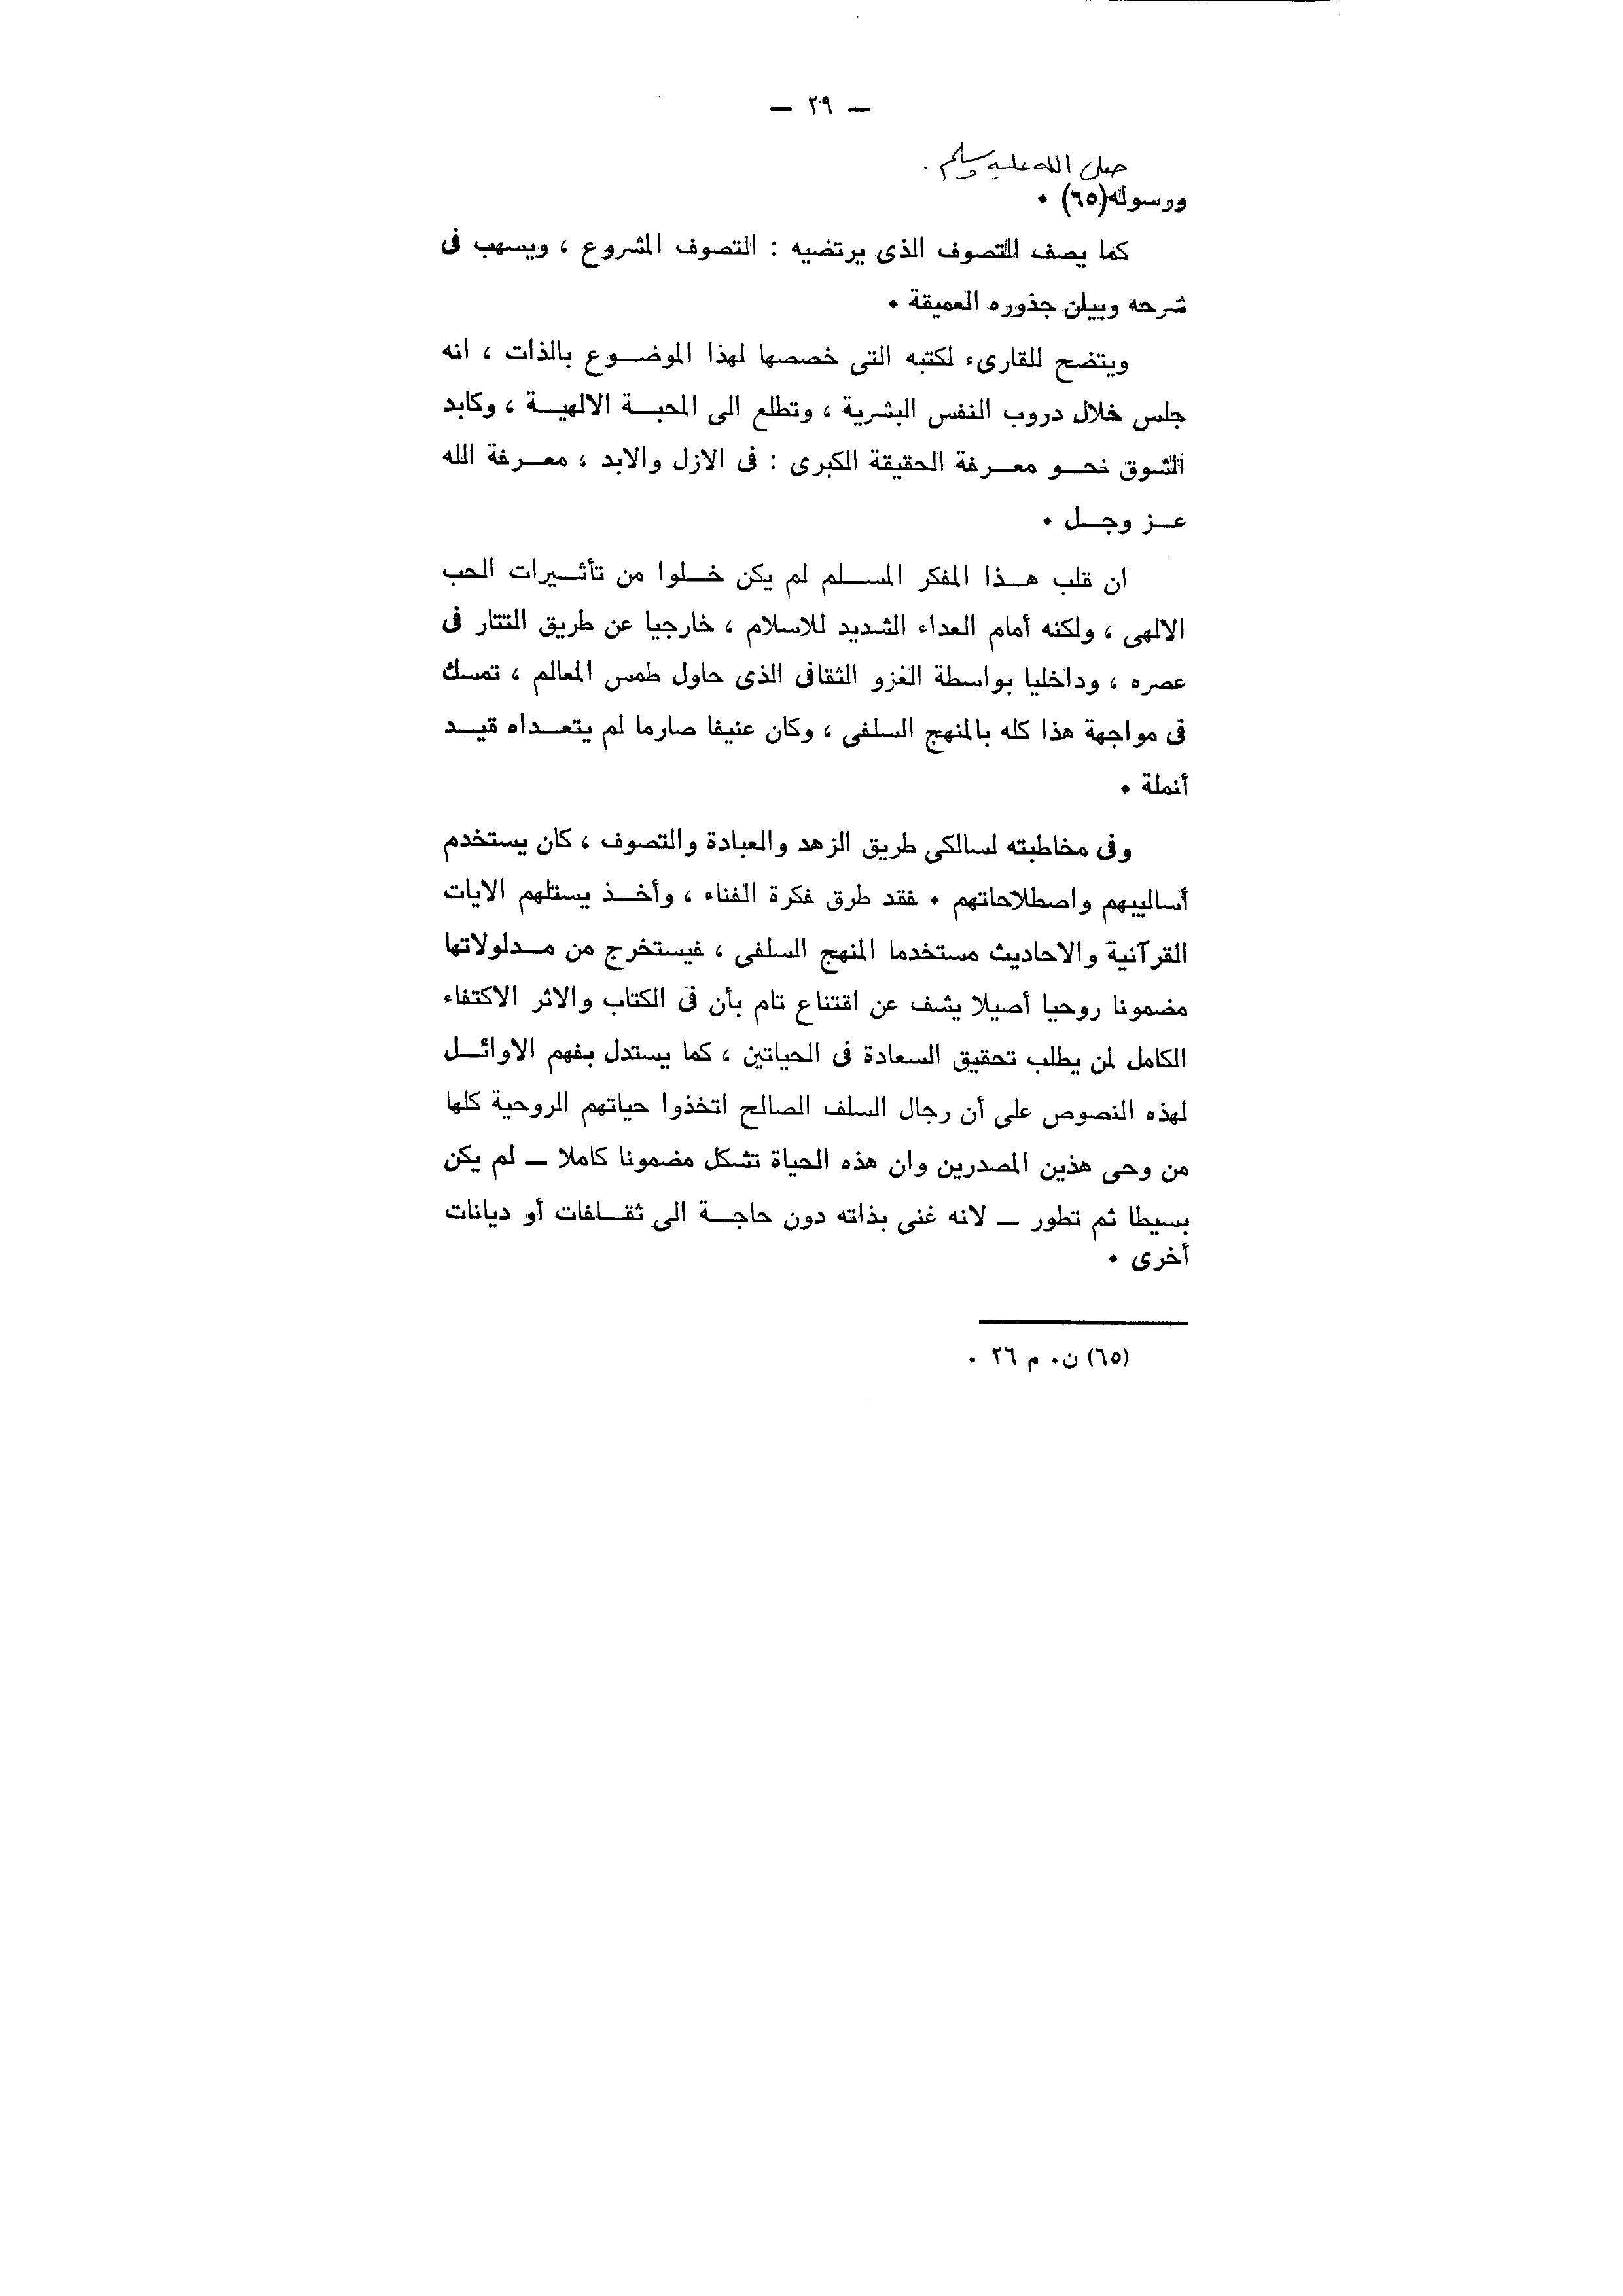 — ٢٩ —
صلى الله عليه وسلم .
ورسوله(٦٥) ٠
كما يصف للتصوف الذى يرتضيه : التصوف المشروع ، ويسهب فى
شرحه وبيان جذوره العميقة ٠
ويتضح للقارىء لكتبه التى خصصها لهذا الموضــوع بالذات ، انه
جلس خلال دروب النفس البشرية ، وتطلع الى المحبــة الالهيــة ، وكابد
الشوق نحــو معــرفة الحقيقة الكبرى : فى الازل والابد ، معــرفة الله
عــز وجــل ٠
ان قلب هــذا المفكر المســلم لم يكن خــلوا من تأثــيرات الحب
الالهى ، ولكنه أمام العداء الشديد للاسلام ، خارجيا عن طريق التتار فى
عصره ، وداخليا بواسطة الغزو الثقافى الذى حاول طمس المعالم ، تمسك
فى مواجهة هذا كله بالمنهج السلفى ، وكان عنيفا صارما لم يتعــداه قيــد
أنملة ٠
وفى مخاطبته لسالكى طريق الزهد والعبادة والتصوف ، كان يستخدم
أساليبهم واصطلاحاتهم ٠ فقد طرق فكرة الفناء ، وأخــذ يستلهم الايات
القرآنية والاحاديث مستخدما المنهج السلفى ، فيستخرج من مــدلولاتها
مضمونا روحيا أصيلا يشف عن اقتناع تام بأن فى الكتاب والاثر الاكتفاء
الكامل لمن يطلب تحقيق السعادة فى الحياتين ، كما يستدل بفهم الاوائــل
لهذه النصوص على أن رجال السلف الصالح اتخذوا حياتهم الروحية كلها
من وحى هذين المصدرين وان هذه الحياة تشكل مضمونا كاملا — لم يكن
بسيطا ثم تطور — لانه غنى بذاته دون حاجــة الى ثقــافات أو ديانات
أخرى ٠
(٦٥) ن٠ م ٢٦ ٠